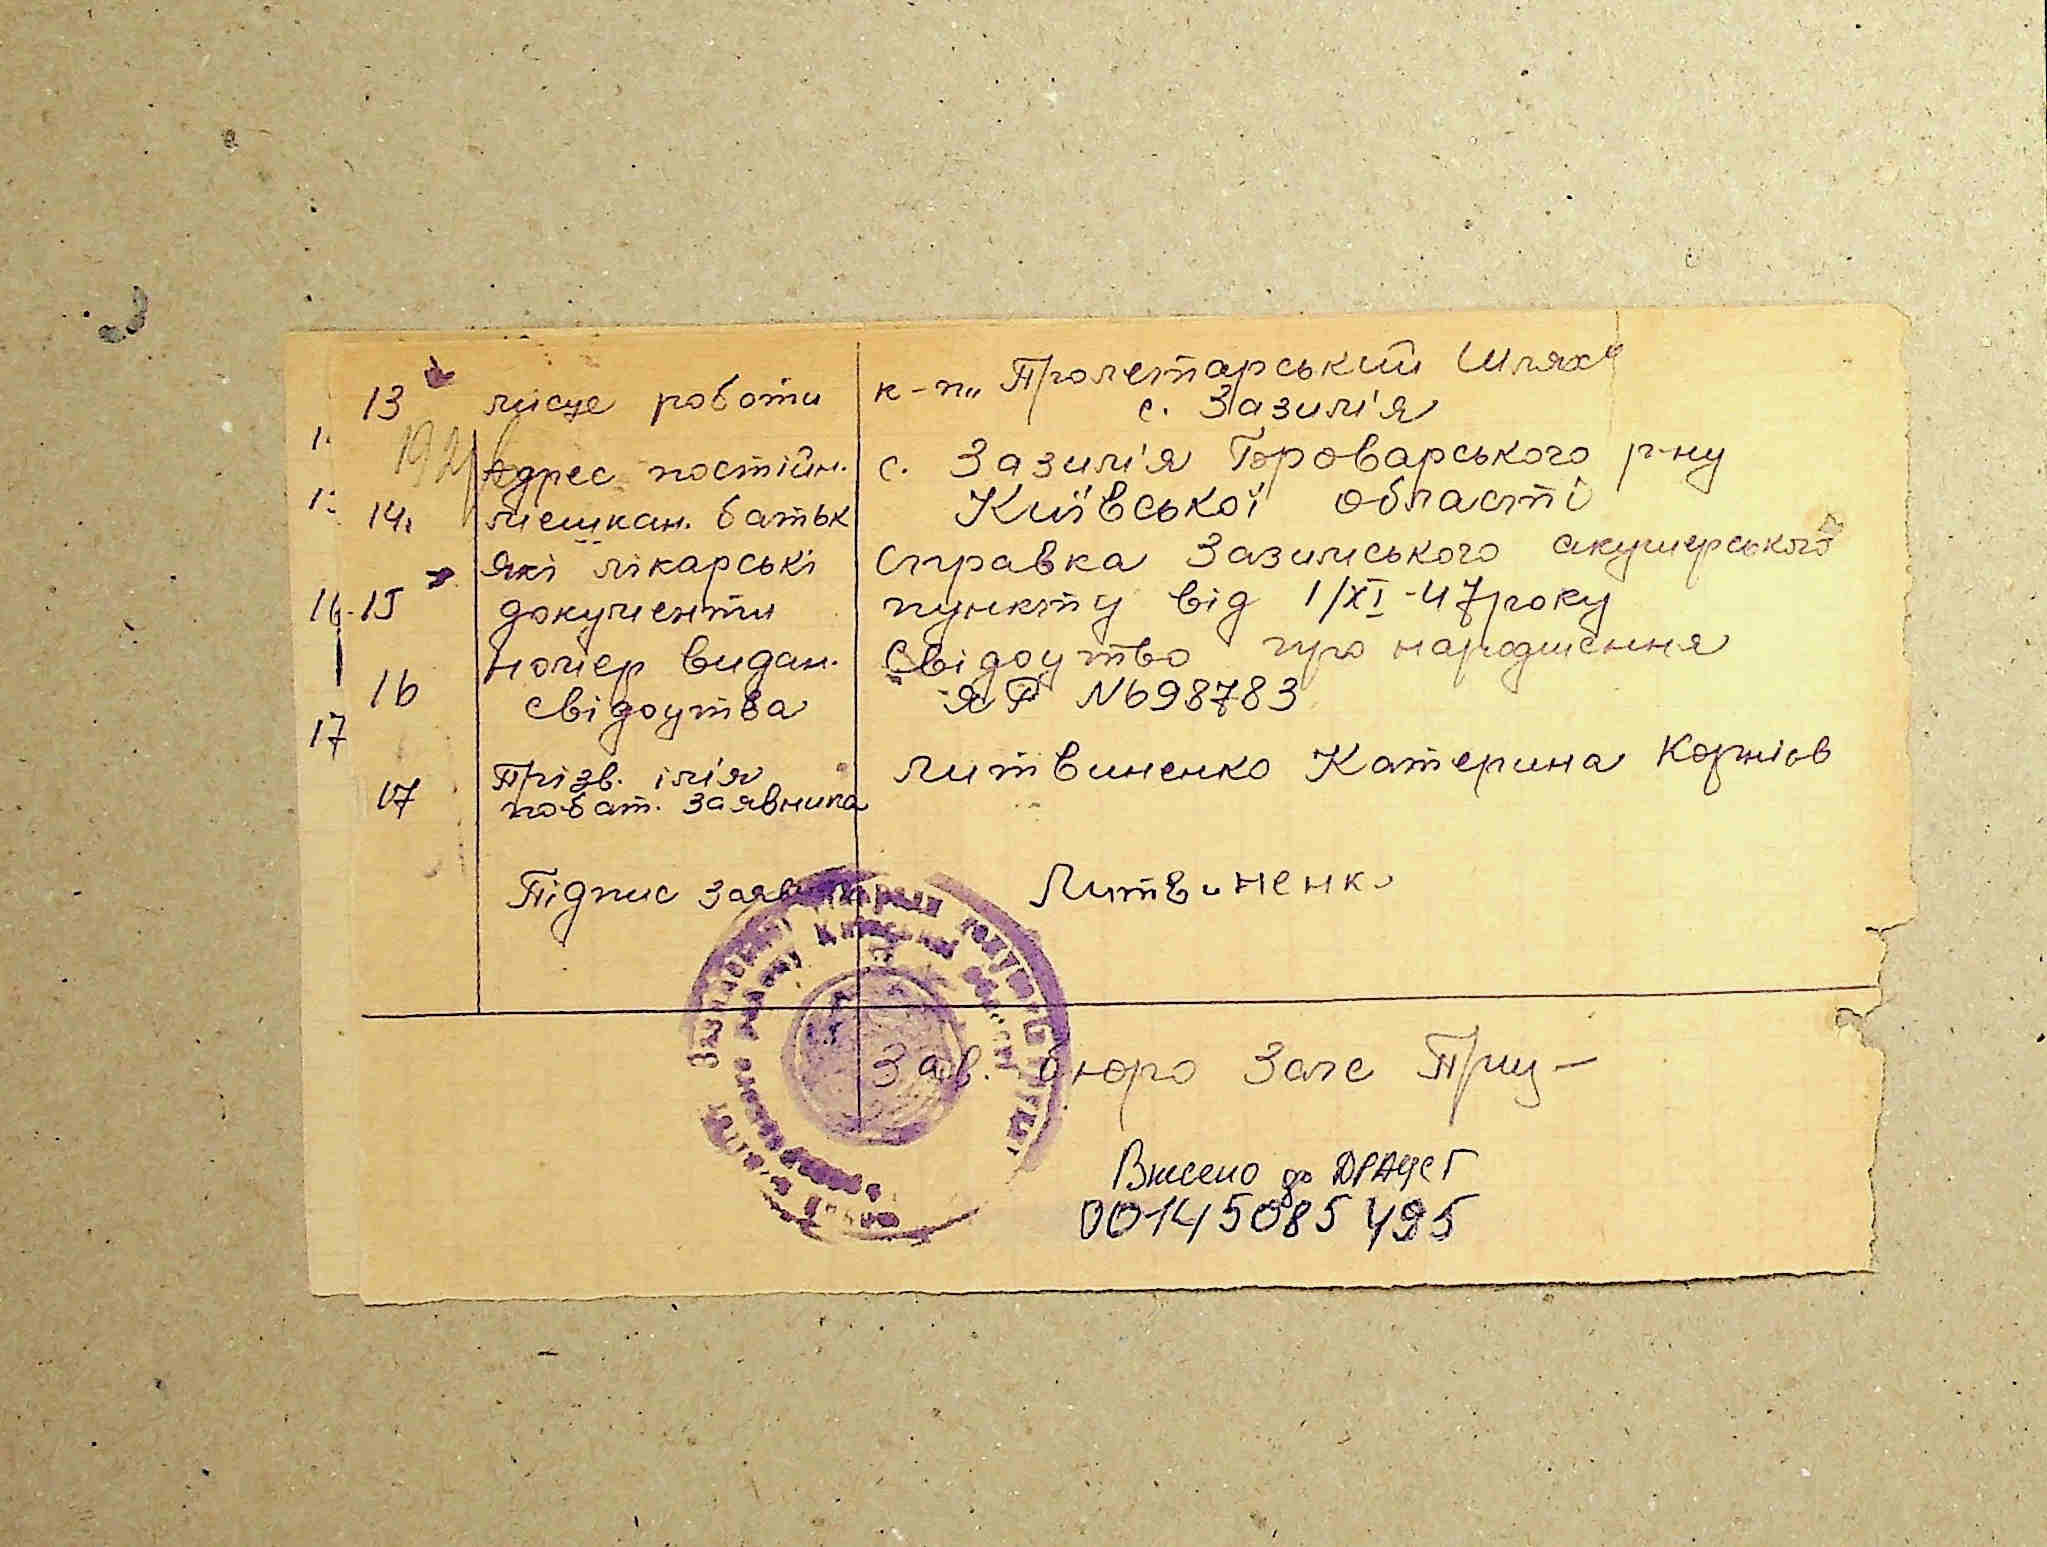 13 місце роботи к-п „Пролетарський Шлях"
с. Зазим'я
1.
192
Адрес постійн. с. Зазим'я Броварського р-ну
1. 14. мешкан. батьк Київської області
які лікарські справка Зазимського акушерського
16. 15 документи пункту від 1/XI-47 року
номер видан. Свідоцтво про народження
16 свідоцтва ЯР N698783
17
Прізв. ім'я Литвиненко Катерина
17 побат. заявника
Підпис заяв Литвиненк
Зав. бюро Загс
Внесено до ДРАЦСГ
00145085495